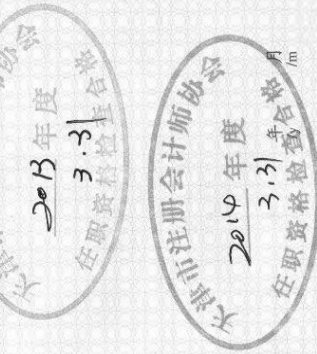 天津
协会
2013 年度
3.31
任职资格检查合格
天津市注册会计师协会
2014 年度
3.31
任职资格检查合格
年
月
/m